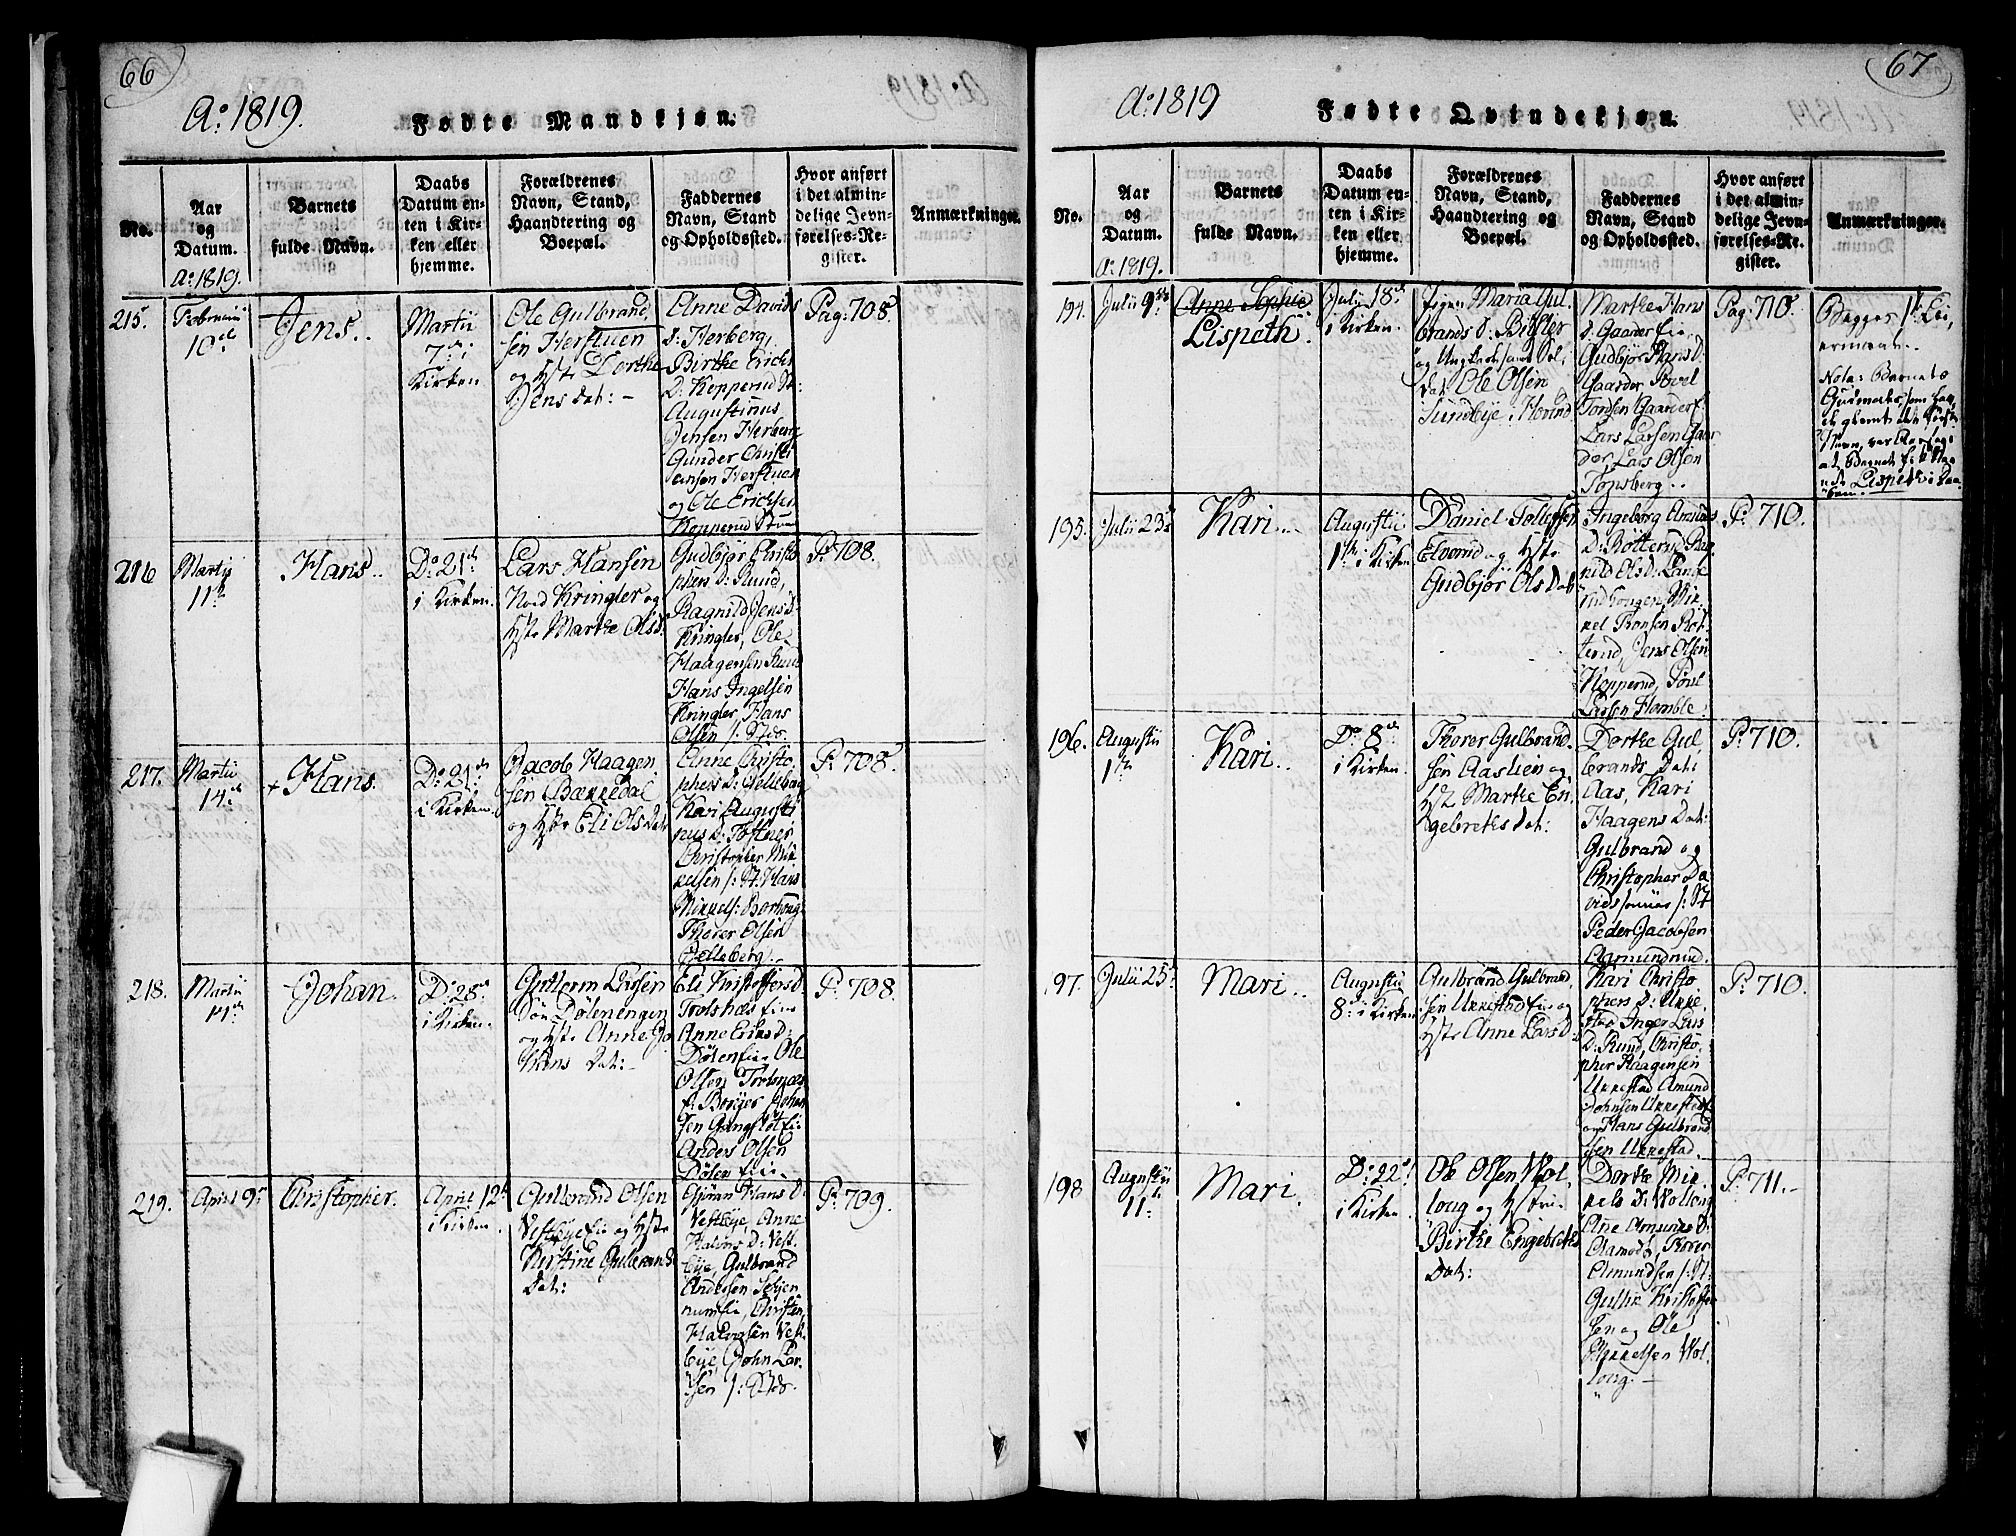 66
Ao 1819.
Fødte Mandkjøn.
No.
Aar og Datum.
Barnets fulde Navn.
Daabs Datum enten i Kirken eller hjemme.
Forældrenes Navn, Stand, Haandtering og Boepæl.
Faddernes Navn, Stand og Opholdssted.
Hvor anført i det almindelige Jevnførelses-Register.
Anmærkninger.
Ao 1819.
215.
Februarii
10de
Jens.
Martii
7de i
Kirken
Ole Gulbrand
sen Herstuen
og Hst: Dorthe
Jens dat:
Anne Davids
d: Herberg,
Birthe Erichs
D: Kopperud St:
Augustinus
Jensen Herberg
Gunder Christi
ansen Herstuen
og Ole Erichsen
Kopperud Stuen
Pag: 708.
216
Martii
11te
Hans.
Do 21de
i Kirken.
Lars Hansen
Nord Kringler og
Hst: Marthe Olsd:
Gudbjør Christo
phers d: Ruud,
Ragnild Jens d:
Kringler, Ole
Haagensen Ruud
Hans Ingelsen
Kringler, Hans
Olsen /: Stds.
P. 708.
217.
Martii
14de
+ Hans.
Do 21de
i Kirken.
Jacob Haagen
sen Bækkedal
og Hst: Eli Ols dat:
Anne Christo
phers d: Jelleberg
Kari Augusti
nus d: Toftner
Christopher Mik
kelsen /: St: Hans
Mikkels: Borhoug
Thorer Olsen
Jelleberg.
P. 708.
218.
Martii
Johan.
Do 28de
i Kirken.
Guttorm
Dølenengen
og Hst: Anne Jo
hans dat:
Eli Kristoffers d:
Anne Eriks d:
Dølen Eie Ole
Olsen
Anders Olsen
Dølen Eie
P. 708.
219.
April 9de
Christopher.
April 12te
i Kirken.
Gulbrand Olsen
Vestbye Eie og Hst:
Kirstine Gulbrands
Dat:
Hans D:
Vestbye, Anne
Halvors D: Vest
bye, Gulbrand
Andersen
Christen
Halvorsen Vest
bye, John Lar
sen /: Stds.
P. 709.
67
Ao 1819
Fødte Qvindekjøn.
No.
Aar og Datum.
Barnets fulde Navn.
Daabs Datum enten i Kirken eller hjemme.
Forældrenes Navn, Stand, Haandtering og Boepæl.
Faddernes Navn, Stand og Opholdssted.
Hvor anført i det almindelige Jevnførelses-Register.
Anmærkninger.
Ao 1819.
194.
Julii 9de
Anne Sophie
Lispeth.
Julii 18de
i Kirken.
Pigen Maria Gul
brands d: Bitsler
og Ungkarl samt Sol
dat Ole Olsen
Sundbye i Hovind
Marthe Hans
d: Gaarder Eie
Gudbjør Hans D:
Gaarder Povel
Lars Larsen Gaar
der Lars Olsen
Tønsberg.
Pag: 710.
Begges 1te Lei
ermaal.
Nota: Barnets
Navn
Lispeth
195.
Julii 23de
Kari.
Augustii
1te i Kirken
Daniel Tollefsen
Elvorud og Hst:
Gudbjør Ols dat:
Ingeborg Amunds
D: Rotterud
Ols d:
Mik
kel
Jens Olsen
Kopperud, Povel
Larsen Homble.
P. 710.
196.
Augustii
1te
Kari.
Do 8de
i Kirken.
Thorer Gulbrand
sen Aaslien og
Hst: Marthe En
gebrets dat:
Dorthe Gul
brands Dat:
Aas, Kari
Haagens Dat:
Gulbrand og
Christopher Da
vidssønner /: St
Peder Jacobsen
Aamundrud.
P. 710.
197.
Julii 25de
Mari.
Augustii
8: i Kirken
Gulbrand Gulbrand
sen Ukkestad Eie og
Hst: Anne Lars D:
Kari Christo
phers d: Ukke
stad Inger Lars
D: Ruud, Christo
pher Haagensen
Ukkestad Amund
Johnsen Ukkestad
og Hans Gulbrand
sen Ukkestad.
P. 710.
198
Augustii
11te
Mari.
Do 22de
i Kirken
Ole Olsen Wol
loug og Hstrue
Birthe Engebrets
Dat:
Dorthe Mik
kels D: Wolloug
Ane Amunds D:
Aamodt, Thorer
Amundsen /: St:
Kristoffer
sen og Ole
Mikkelsen Wol
loug.
P. 711.